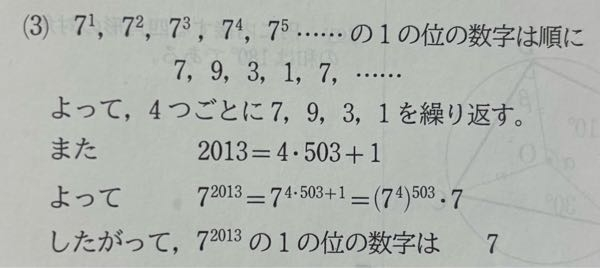 (3) 7¹, 7², 7³, 7⁴, 7⁵ …… の1の位の数字は順に
7, 9, 3, 1, 7, ……
よって，4つごとに7，9，3，1を繰り返す。
また 2013＝4・503＋1
よって 7²⁰¹³＝7⁴˙⁵⁰³⁺¹＝(7⁴)⁵⁰³・7
したがって，7²⁰¹³ の1の位の数字は 7